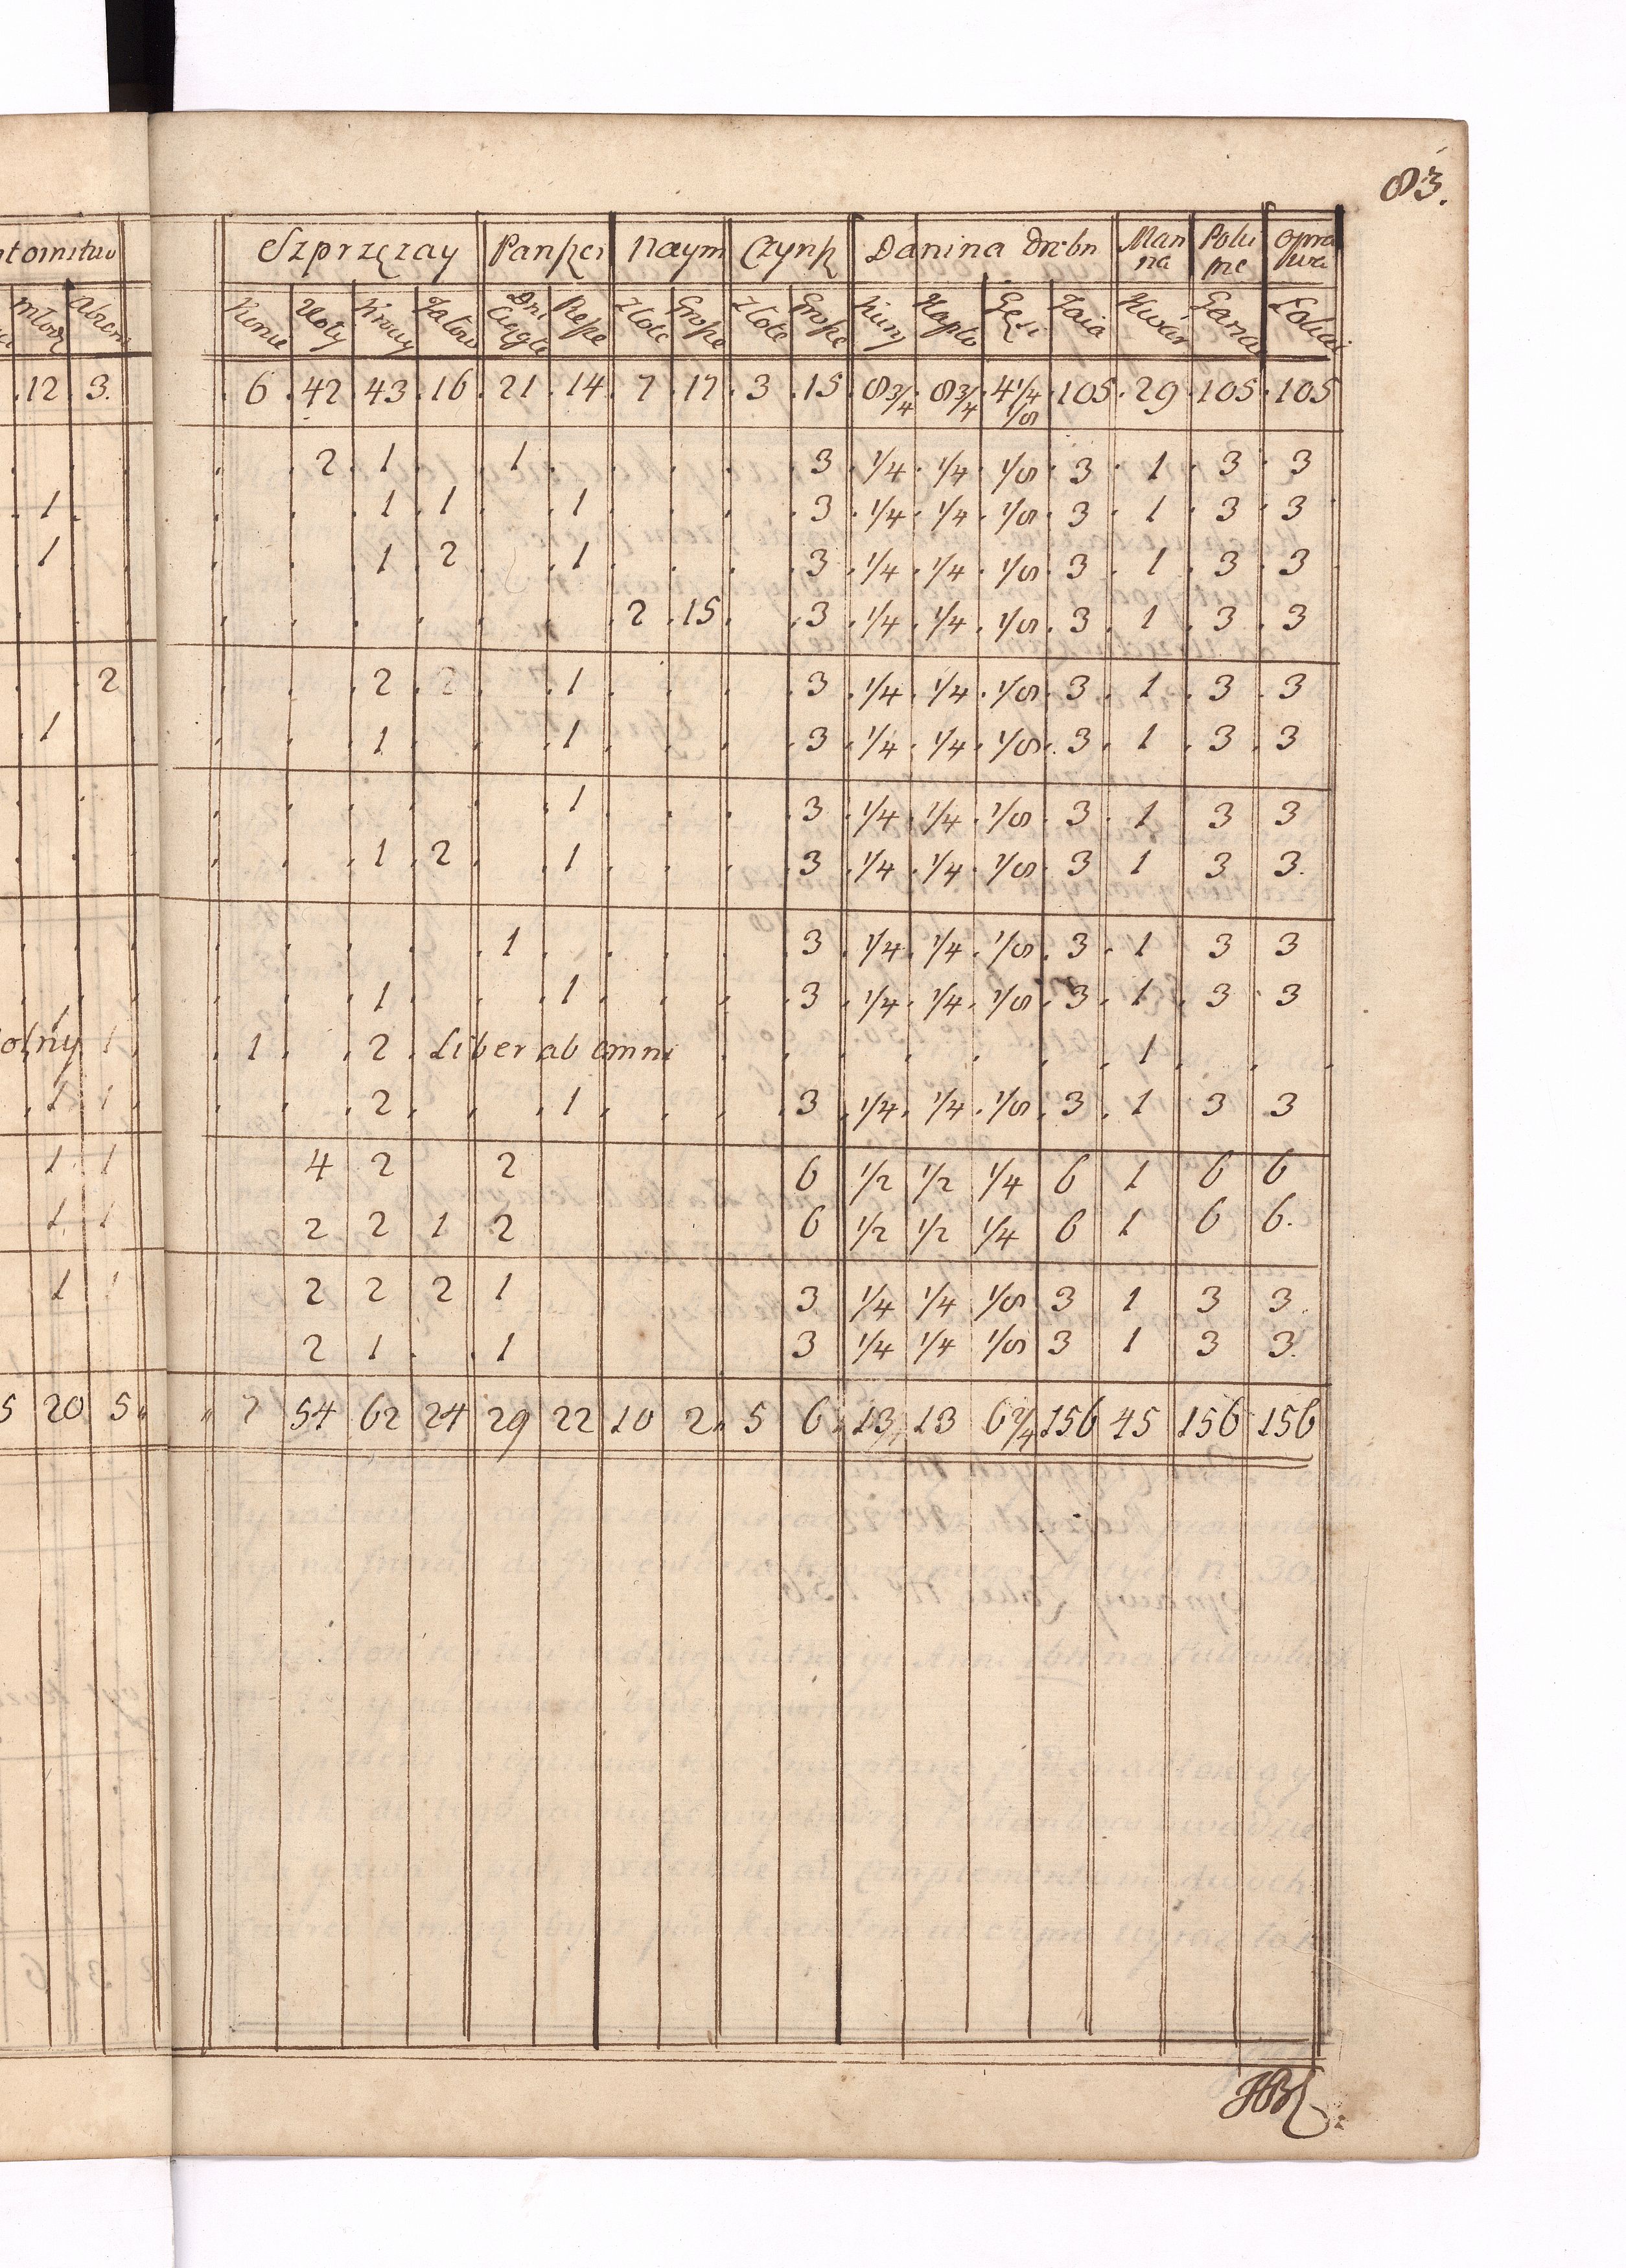 83.
Szprzęzay Panszczi Naym Czynsz Danina drobn Man Polu opra
na ne wa
młodz Konie Woły Krowy Jałow Dni Ciągłe Piesze Złote Grosze Złote Grosze Kury Kapło Gęsi Jaia Kwar
12 3. 6 42 43 16 21 14 7 17 3 15 8¾ 8¾ 4¼ 1/8 105 29 105 105
2 1 1 3 1/4 1/4 1/8 3 1 3 3
1 1 1 1 3 1/4 1/4 1/8 3 1 3 3
1 1 2 1 3 1/4 1/4 1/8 3 1 3 3
2 15 3 1/4 1/4 1/8 3 1 3 3
2 2 2 1 3 1/4 1/4 1/8 3 1 3 3
1 1 1 3 1/4 1/4 1/8 3 1 3 3
1 3 1/4 1/4 1/8 3 1 3 3
1 2 1 3 1/4 1/4 1/8 3 1 3 3.
1 3 1/4 1/4 1/8 3 1 3 3
1 1 3 1/4 1/4 1/8 3 1 3 3
olny 1 1 2 Liber ab omni 1
1 1 2 1 3 1/4 1/4 1/8 3 1 3 3
1 1 4 2 2 6 1/2 1/2 1/4 6 1 6 6
1 1 2 2 1 2 6 1/2 1/2 1/4 6 1 6 6.
1 1 2 2 2 1 3 1/4 1/4 1/8 3 1 3 3.
2 1 1 3 1/4 1/4 1/8 3 1 3 3.
5 20 5 7 54 62 24 29 22 10 2 5 6 13 13 6 2/4 156 45 156 156